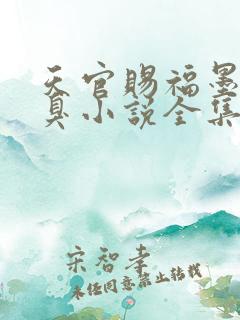 天官赐福墨
真小说全集
宋智孝
未经同意禁止转载